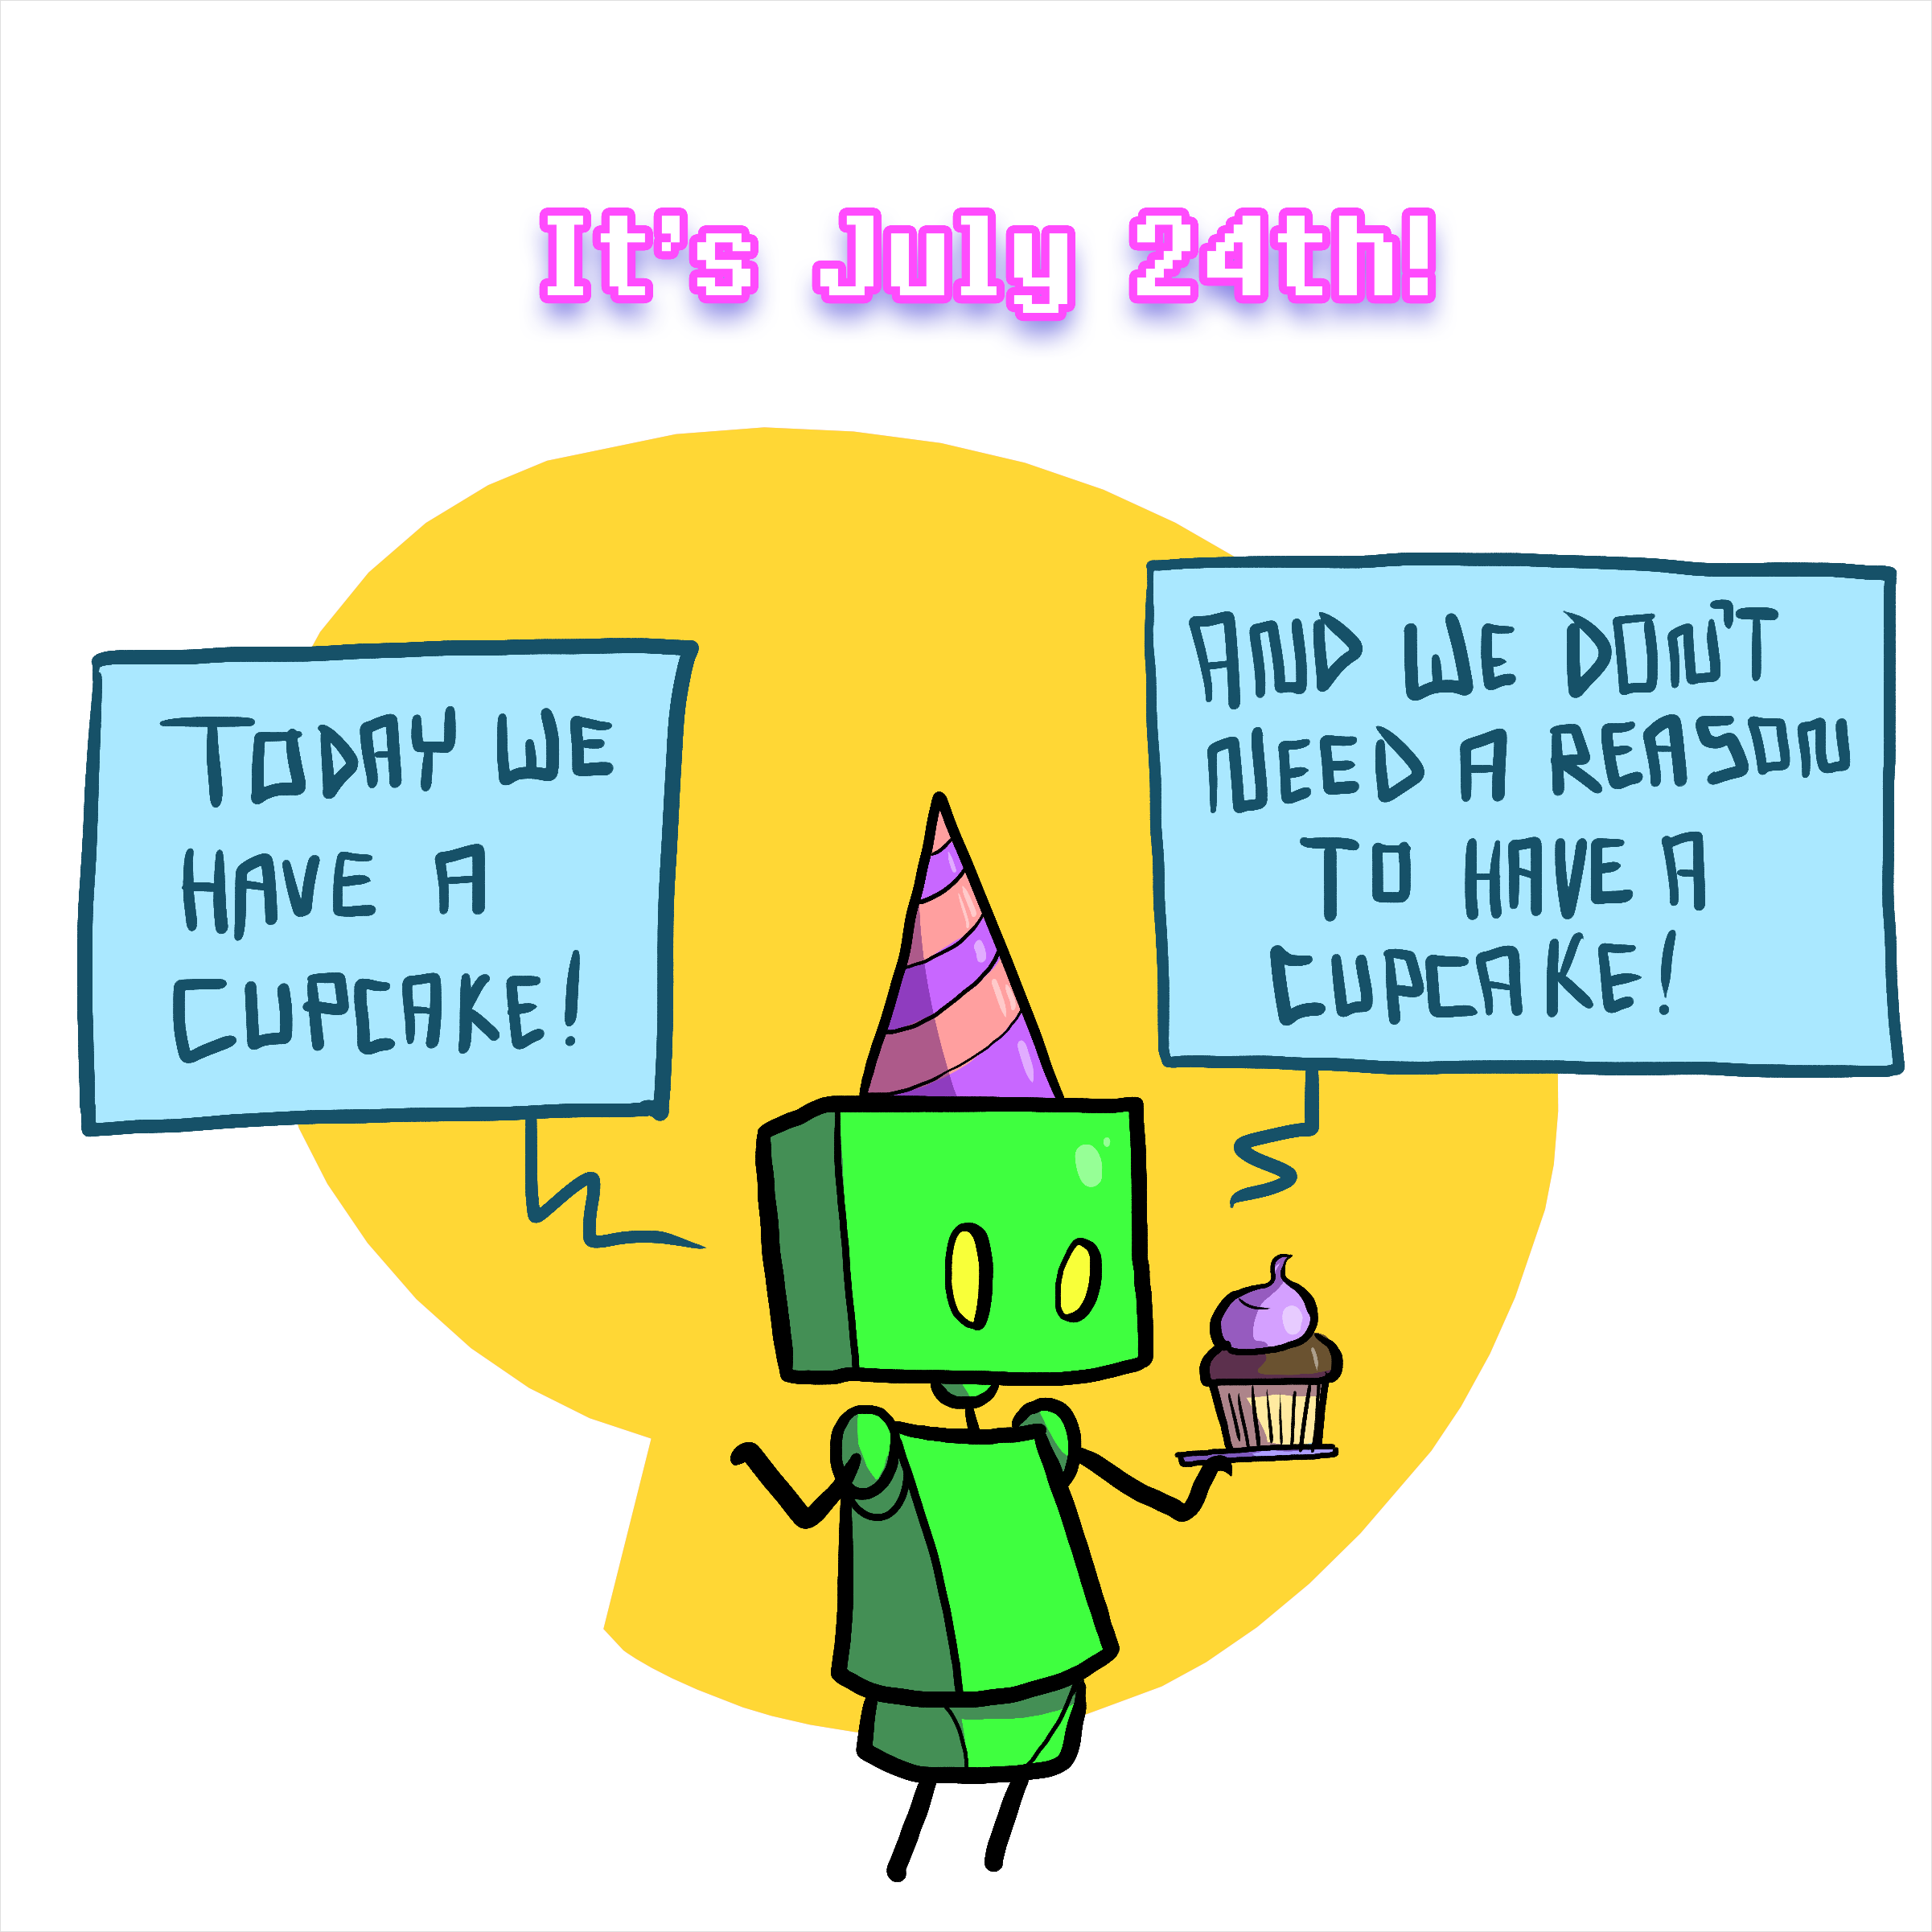 It's July 24th!
TODAY WE
HAVE A
CUPCAKE!
AND WE DON'T
NEED A REASON
TO HAVE A
CUPCAKE!